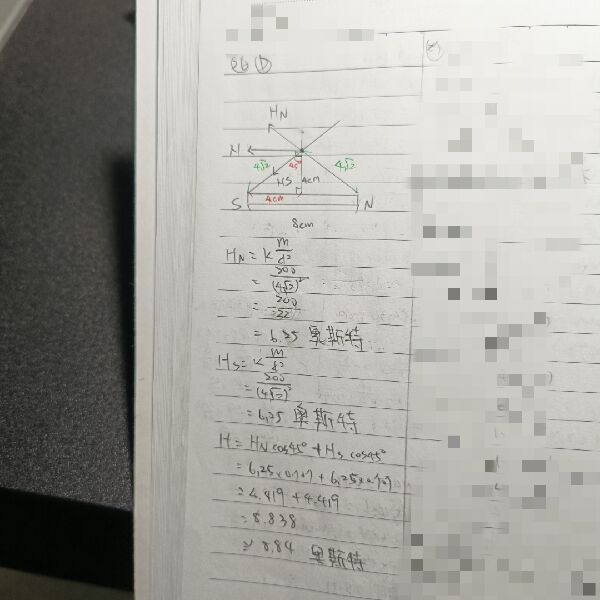 HN
H
4√2
45°
4√2
HS
4cm
S
4cm
N
8cm
HN = K m/d²
= 200/(4√2)²
= 200/32
= 6.25 奧斯特
HS = K m/d²
= 200/(4√2)²
= 6.25 奧斯特
H = HN cos45° + HS cos45°
= 6.25 x 0.707 + 6.25 x 0.707
= 4.419 + 4.419
= 8.838
≈ 8.84 奧斯特